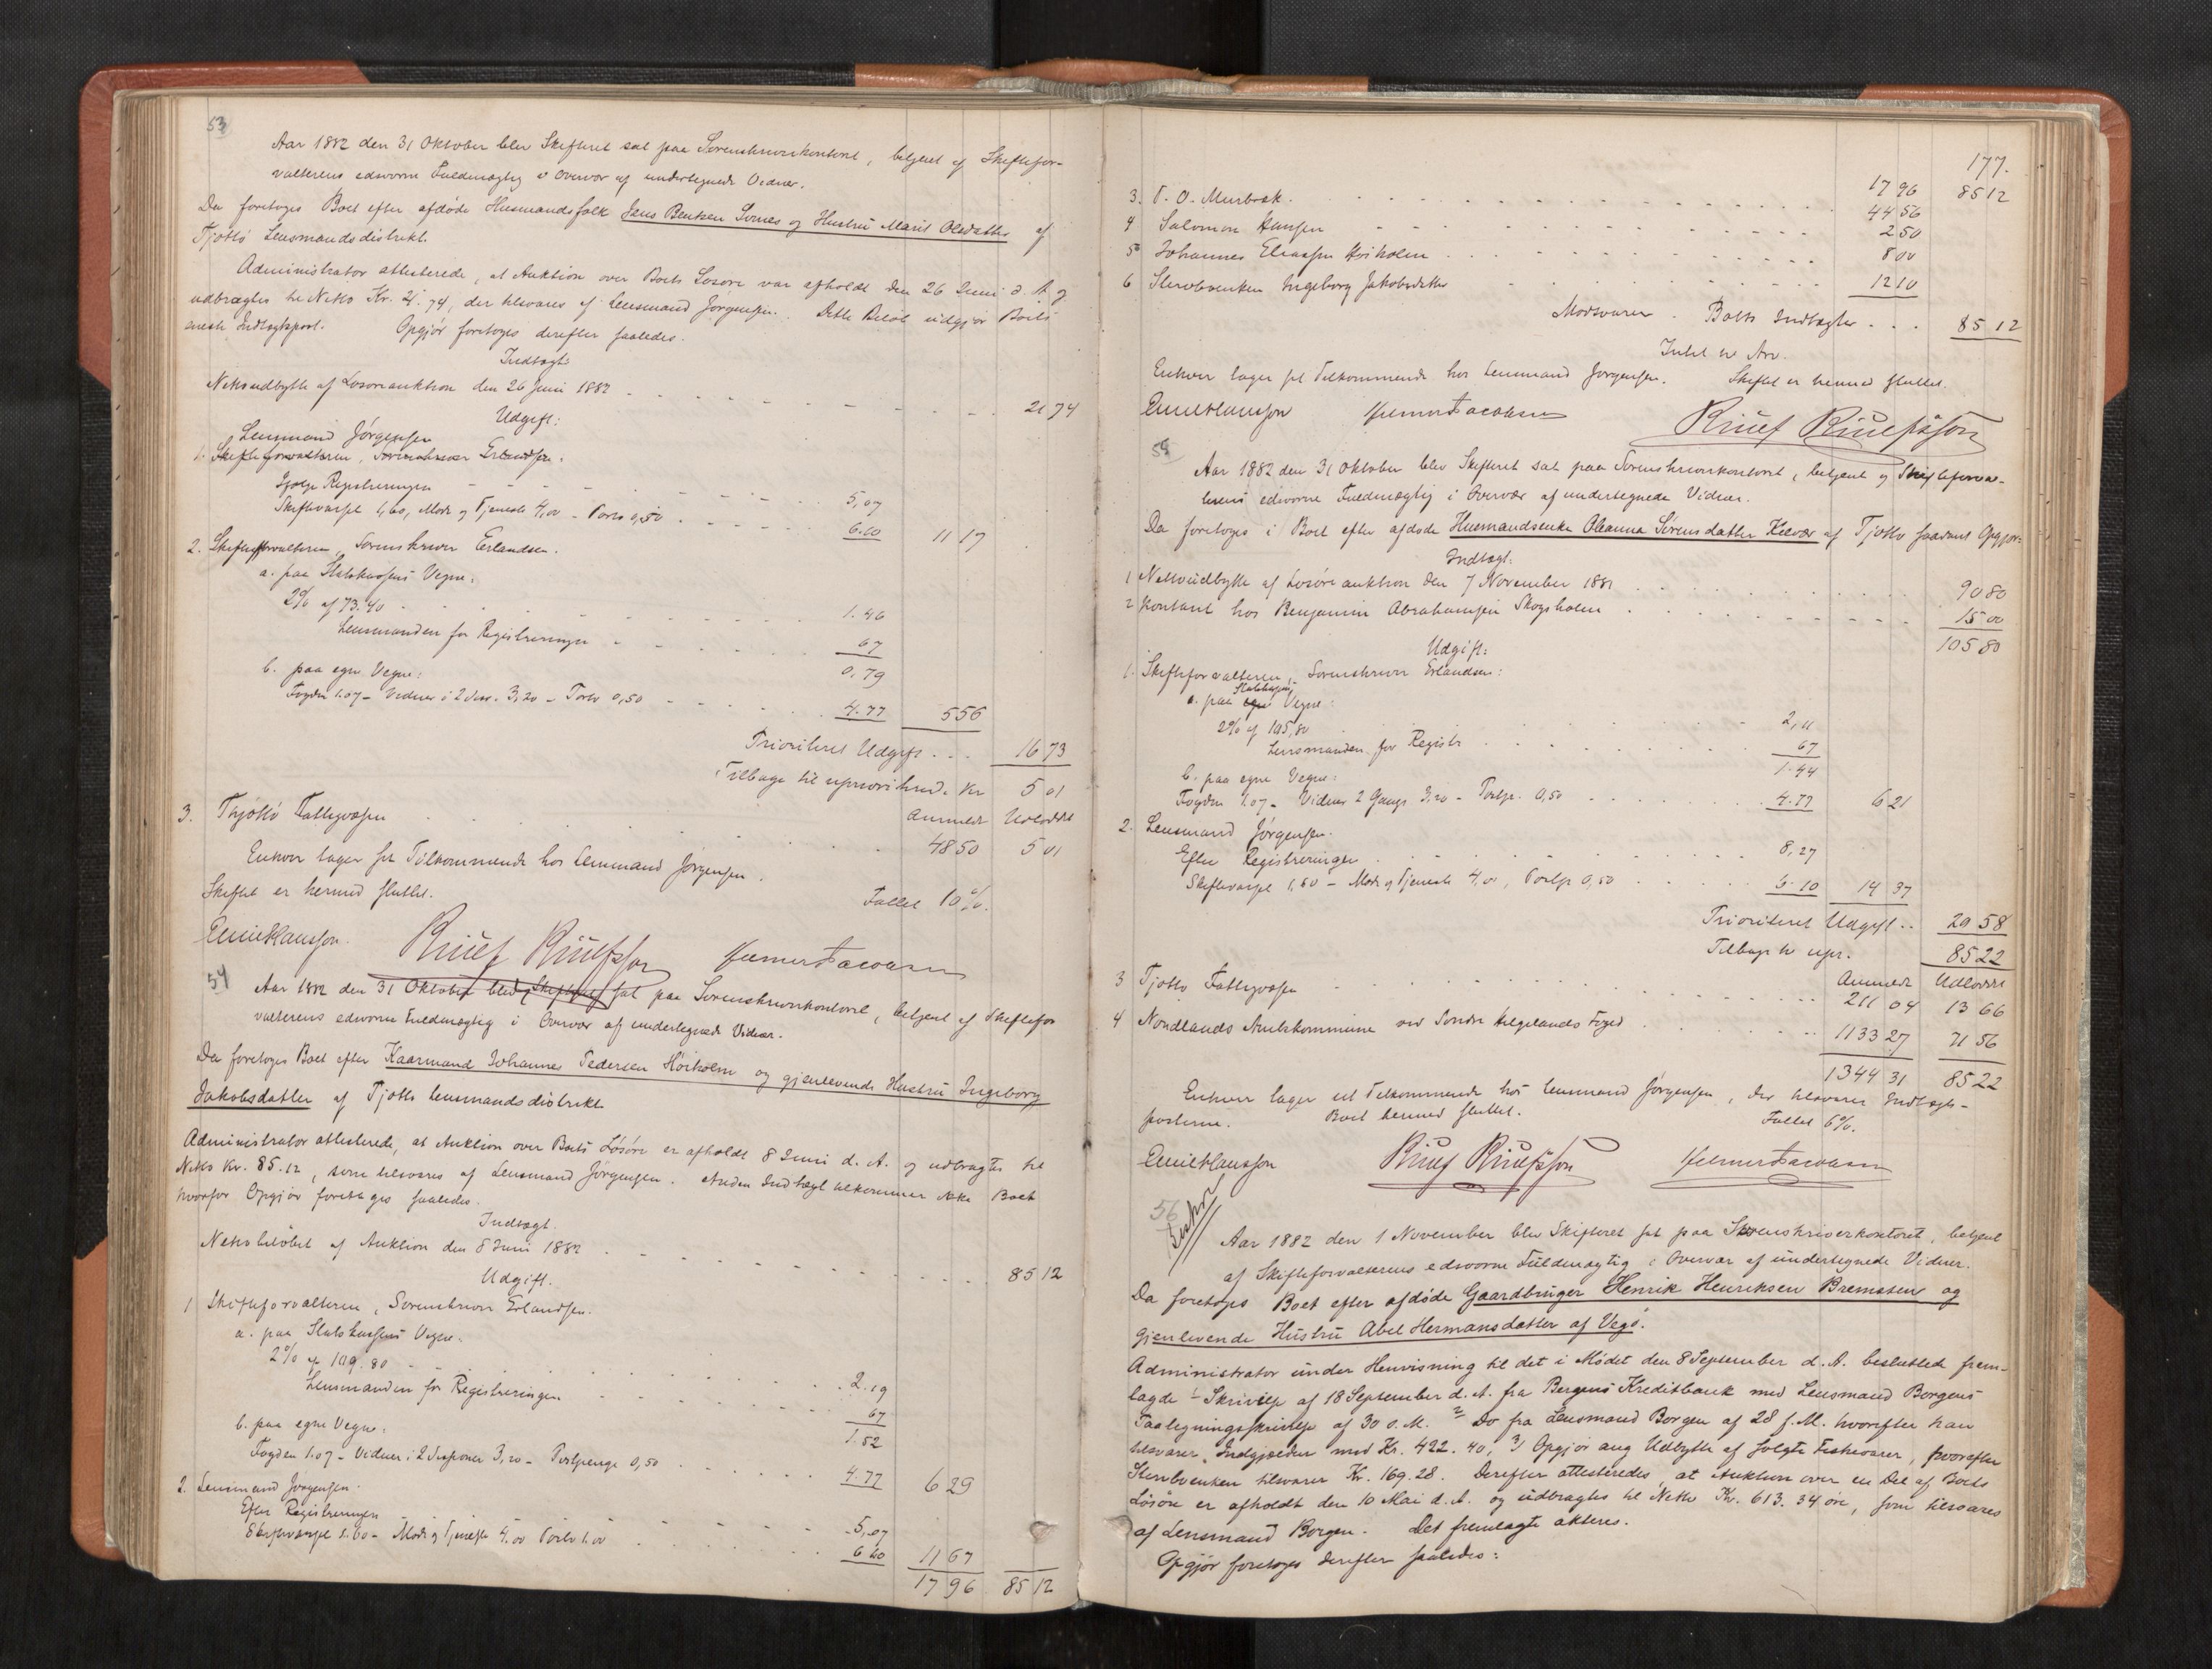 53
Aar 1882 den 31 Oktober blev Skifteret sat paa Sorenskriverkontoret, betjent af Skiftefor-
valterens edsvorne Fuldmægtig i Overvær af undertegnede Vidner.
Da foretoges Boet efter afdøde Husmandsfolk Jens Bentsen Sornes og Hustru Marit Olsdatter af
Tjøttø Lensmandsdistrikt.
Administrator attesterede, at Auktion over Boets Løsøre var afholdt den 26 Juni d. A. og
udbragtes til Netto Kr. 21.74, der tilsvares af Lensmand Jørgensen. Dette Beløb udgjør Boets
eneste Indtægtspost. Opgjør foretoges derefter saaledes.
Indtægt:
Nettoudbytte af Løsøreauktion den 26 Juni 1882 21 74
Udgift:
Lensmand Jørgensen
1. Skifteforvalteren, Sorenskriver Erlandsen.
Ifølge Registreringen 5,07
Skiftevarsel 1,60, Møde og Tjeneste 4,00 - Porto 0,50 6.10 11 17
2. Skifteforvalteren, Sorenskriver Erlandsen.
a. paa Statskassens Vegne.
2% af 73.40 1.46
Lensmanden for Registreringen 67
0.79
b. paa egne Vegne:
Fogden 1.07 - Vidner i 2 Sess. 3,20 - Porto 0,50 4.77 5 56
Prioriteret Udgift 16 73
Tilbage til uprioriterede Kr 5 01
Anmeldt Udloddet
3. Thjøttø Fattigvæsen 48 50 5 01
Enhver tager sit Tilkommende hos Lensmand Jørgensen.
Skiftet er hermed sluttet. Faldet 10%.
Emil Hansson. Knut Knutsson Helmer Jacobsen
54
Aar 1882 den 31 Oktober blev Skifteret sat paa Sorenskriverkontoret, betjent af Skiftefor
valterens edsvorne Fuldmægtig i Overvær af undertegnede Vidner.
Da foretoges Boet efter Kaarmand Johannes Pedersen Høiholm og gjenlevende Hustru Ingeborg
Jakobsdatter af Tjøttø Lensmandsdistrikt
Administrator attesterede, at Auktion over Boets Løsøre er afholdt 8 Juni d. A. og udbragtes til
Netto Kr. 85.12, som tilsvares af Lensmand Jørgensen. Anden Indtægt tilkommer ikke Boet
hvorfor Opgjør foretoges saaledes.
Indtægt.
Nettobeløbet af Auktion den 8 Juni 1882 85 12
Udgift.
1 Skifteforvalteren, Sorenskriver Erlandsen.
a. paa Statskassens Vegne.
2% af 109.80 2.19
Lensmanden for Registreringen 67
1.52
b. paa egne Vegne:
Fogden 1.07 - Vidner i 2 Sessioner 3,20 - Postpenge 0,50 4.77 6 29
2. Lensmand Jørgensen.
Efter Registreringen 5,07
Skiftevarsel 1.60 - Møde og Tjeneste 4.00 Porto 1.00 6 60 11 67
17 96 85 12
177.
17 96 85 12
3. P. O. Murbræk. 44 56
4 Salomon Hansen 2 50
5 Johannes Eliassen Høiholm 8 00
6 Stervboenken Ingeborg Jakobsdatter 12 10
Modsvarer Boets Indtægter 85 12
Intet til Arv.
Enhver tager sit Tilkommende hos Lensmand Jørgensen. Skiftet er hermed sluttet.
Emil Hansson Helmer Jacobsen Knut Knutsson
55
Aar 1882 den 31 Oktober blev Skifteret sat paa Sorenskriverkontoret, betjent af Skifteforval-
terens edsvorne Fuldmægtig i Overvær af undertegnede Vidner.
Da foretoges i Boet efter afdøde Husmandsenke Oleanna Sørensdatter Kilvær af Tjøttø saadant Opgjør:
Indtægt:
1 Nettoudbytte af Løsøreauktion den 7 November 1881 90 80
2 Kontant hos Benjamin Abrahamsen Skogsholm 15 00
105 80
Udgift:
1. Skifteforvalteren, Sorenskriver Erlandsen:
Statskassens
a. paa egne Vegne:
2% af 105,80 2,11
Lensmanden for Registr 67
1.44
b. paa egne Vegne:
Fogden 1.07 - Vidner 2 Gange 3,20 - Postp. 0,50 4.77 6 21
2. Lensmand Jørgensen.
Efter Registreringen 8,27
Skiftevarsel 1,60 - Møde og Tjeneste 4,00, Postp 0,50 6.10 14 37
Prioriteret Udgift 20 58
Tilbage til upr. 85 22
Anmeldt Udloddet
3 Tjøttø Fattigvæsen 211 04 13 66
4 Nordlands Amtskommune ved Søndre Helgelands Foged 1133 27 71 56
1344 31 85 22
Enhver tager sit Tilkommende hos Lensmand Jørgensen, der tilsvarer Indtægts-
posterne. Boet hermed sluttet. Faldet 6%.
Emil Hansson Knut Knutsson Helmer Jacobsen
56
Aar 1882 den 1 November blev Skifteret sat paa Sorenskriverkontoret, betjent
af Skifteforvalterens edsvorne Fuldmægtig i Overvær af undertegnede Vidner.
Da foretoges Boet efter afdøde Gaardbruger Henrik Henriksen Bremsten og
gjenlevende Hustru Abel Hermansdatter af Vegø.
Administrator under Henvisning til det i Mødet den 8 September d. A. besluttede frem-
lagde 1 Skrivelse af 18 September d. A. fra Bergens Kreditbank med Lensmand Borgens
Paategningsskrivelse af 30 s. M. 2 Do fra Lensmand Borgen af 28 f. M. hvorefter han
tilsvarer Indgjælder med Kr. 422.40, 3) Opgjør ang Udbytte af solgte Fiskevarer, hvorefter
Stervboenken tilsvarer Kr. 169.28. Derefter attesteredes, at Auktion over en Del af Boets
Løsøre er afholdt den 10 Mai d. A. og udbragtes til Netto Kr. 613.34 øre, som tilsvares
af Lensmand Borgen. Det fremlagte akteres.
Opgjør foretoges derefter saaledes: